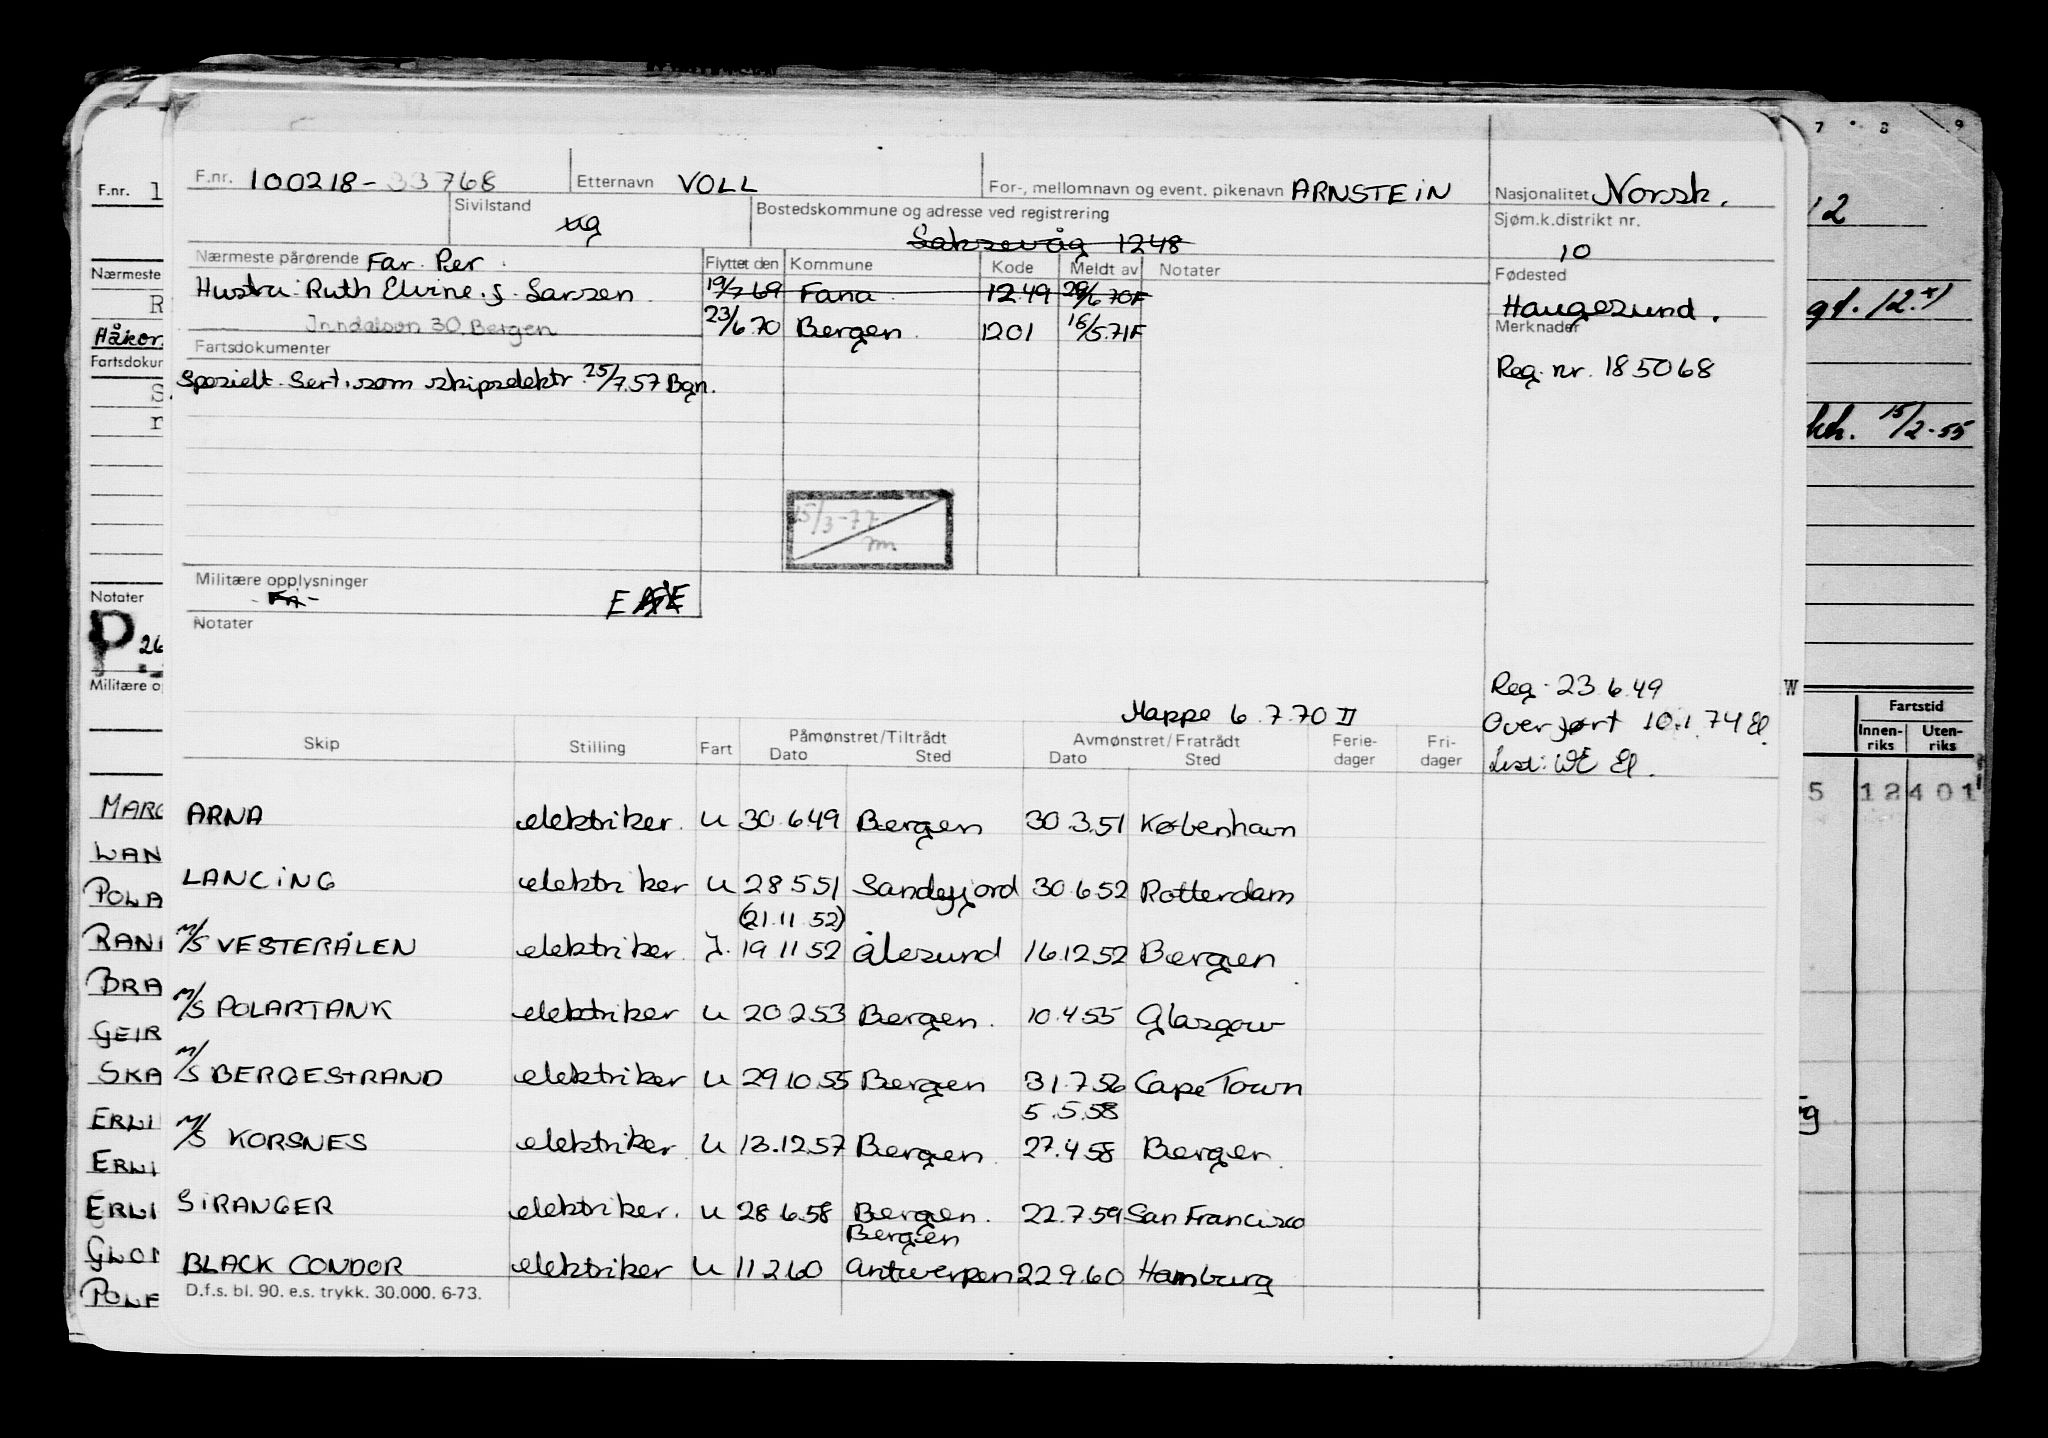 F.nr. 100218-33768 Etternavn VOLL For-, mellomnavn og event. pikenavn ARNSTEIN Nasjonalitet Norsk.
Sivilstand ug Bostedskommune og adresse ved registrering Laksevåg 1248 Sjøm.k.distrikt nr. 10
Nærmeste pårørende Far Per Flyttet den Kommune Kode Meldt av Notater Fødested
Hustru Ruth Elvine f. Larsen 19/7 69 Fana 1249 29/6 70F Haugesund.
Inndalsvn 30 Bergen 23/6 70 Bergen 1201 16/5.71F Merknader
Fartsdokumenter
Spesielt Sert. som skipselektr. 25/7.57 Bgn. Reg. nr. 185068
15/3-77
Militære opplysninger
Notater
Reg. 23.6.49
Mappe 6.7.70 II Overført 10.1.74 El.
Skip Stilling Fart Påmønstret/Tiltrådt Dato Sted Avmønstret/Fratrådt Dato Sted Ferie-dager Fri-dager
ARNA elektriker U 30.6.49 Bergen 30.3.51 København
LANCING elektriker U 28.5.51 Sandefjord 30.6.52 Rotterdam
(21.11.52)
M/S VESTERÅLEN elektriker I. 19.11.52 Ålesund 16.12.52 Bergen
M/S POLARTANK elektriker U 20.2.53 Bergen. 10.4.55 Glasgow
M/S BERGESTRAND elektriker U 29.10.55 Bergen 31.7.56 Cape Town
5.5.58
M/S KORSNES elektriker U 13.12.57 Bergen 27.4.58 Bergen
SIRANGER elektriker. U 28.6.58 Bergen. 22.7.59 San Francisco
Bergen
BLACK CONDOR elektriker U 11.2.60 Antwerpen 22.9.60 Hamburg
D.f.s. bl. 90. e.s. trykk. 30.000. 6-73.
F.nr. 1
Nærmeste
Notater
P. 26
Militære
7 8 9
12
gt. 12.
15/2-55
W
Fartstid
Innen-riks Uten-riks
5 12401